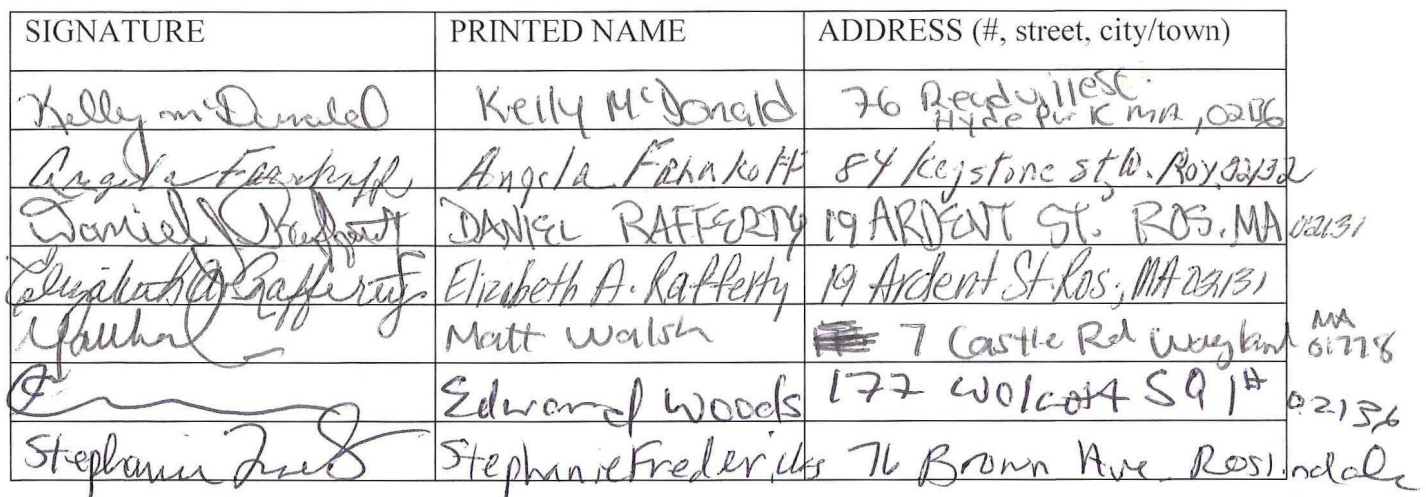 SIGNATURE PRINTED NAME ADDRESS (#, street, city/town)
Kelly McDonald Kelly McDonald 76 Readville St.
Hyde Park MA, 02136
Angela Angela 84 Keystone st W. Roy 02132
Daniel Rafferty DANIEL RAFFERTY 19 ARDENT ST. ROS. MA 02131
Elizabeth A Rafferty Elizabeth A. Rafferty 19 Ardent St. Ros., MA 02131
Matt Walsh 7 Castle Rd Wayland MA
01778
Edward Woods 177 Wolcott SQ 1# 02136
Stephanie Stephanie Fredericks 76 Brown Ave Roslindale